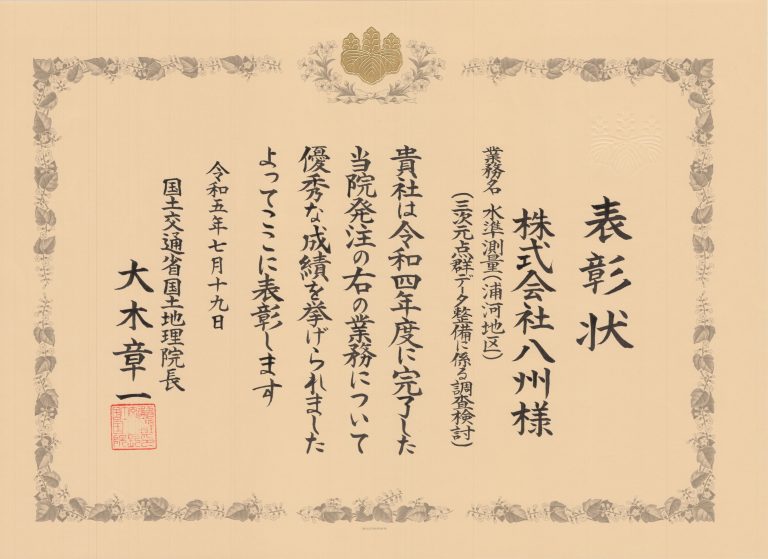 表彰状
株式会社八州様
業務名 水準測量(浦河地区)
(三次元点群データ整備に係る調査検討)
貴社は令和四年度に完了した
当院発注の右の業務について
優秀な成績を挙げられました
よってここに表彰します
令和五年七月十九日
国土交通省国土地理院長
大木章一